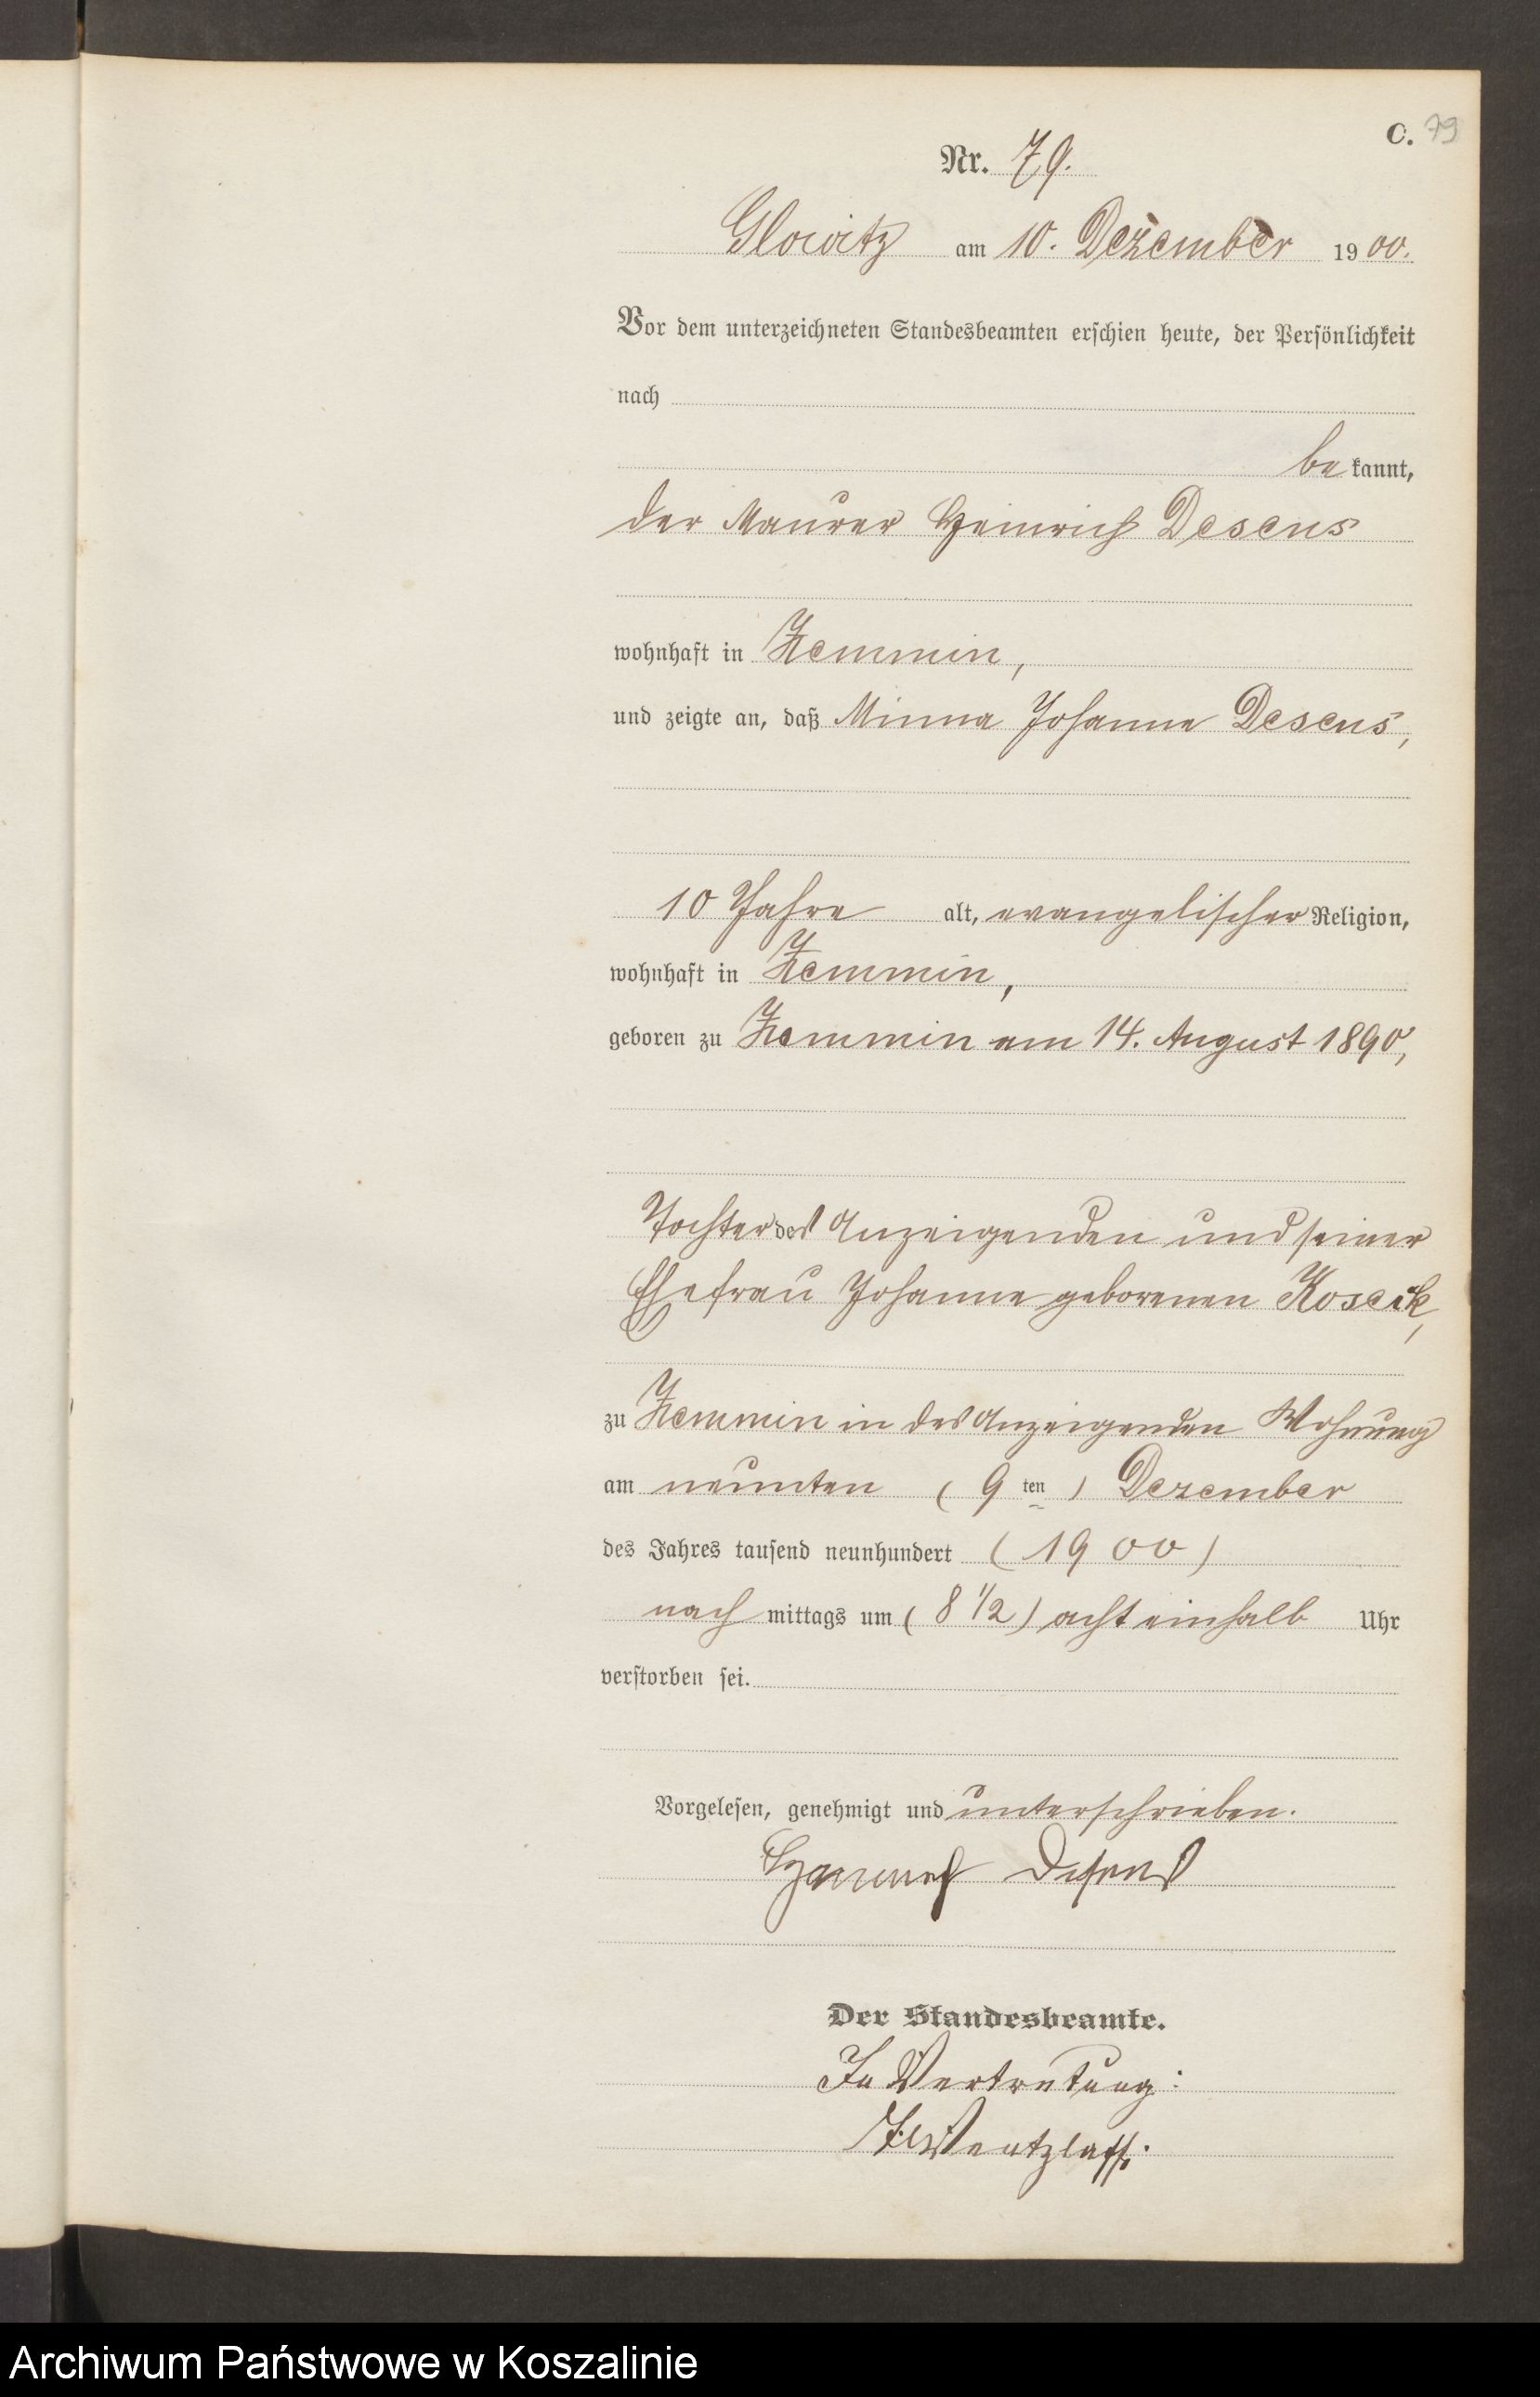 C. 79
Nr. 79.
Glowitz am 10. Dezember 1900.
Vor dem unterzeichneten Standesbeamten erschien heute, der Persönlichkeit
nach
bekannt,
der Maurer Heinrich Desens
wohnhaft in Zemmin,
und zeigte an, daß Minna Johanne Desens,
10 Jahre alt, evangelischer Religion,
wohnhaft in Zemmin,
geboren zu Zemmin am 14. August 1890,
Tochter des Anzeigenden und seiner
Ehefrau Johanne geborenen Koseik,
zu Zemmin in des Anzeigenden Wohnung
am neunten (9ten) Dezember
des Jahres tausend neunhundert (1900)
nachmittags um (8 1/2) acht einhalb Uhr
verstorben sei.
Vorgelesen, genehmigt und unterschrieben.
Heinrich Desens
Der Standesbeamte.
In Vertretung:
Wentzlaff.
Archiwum Państwowe w Koszalinie